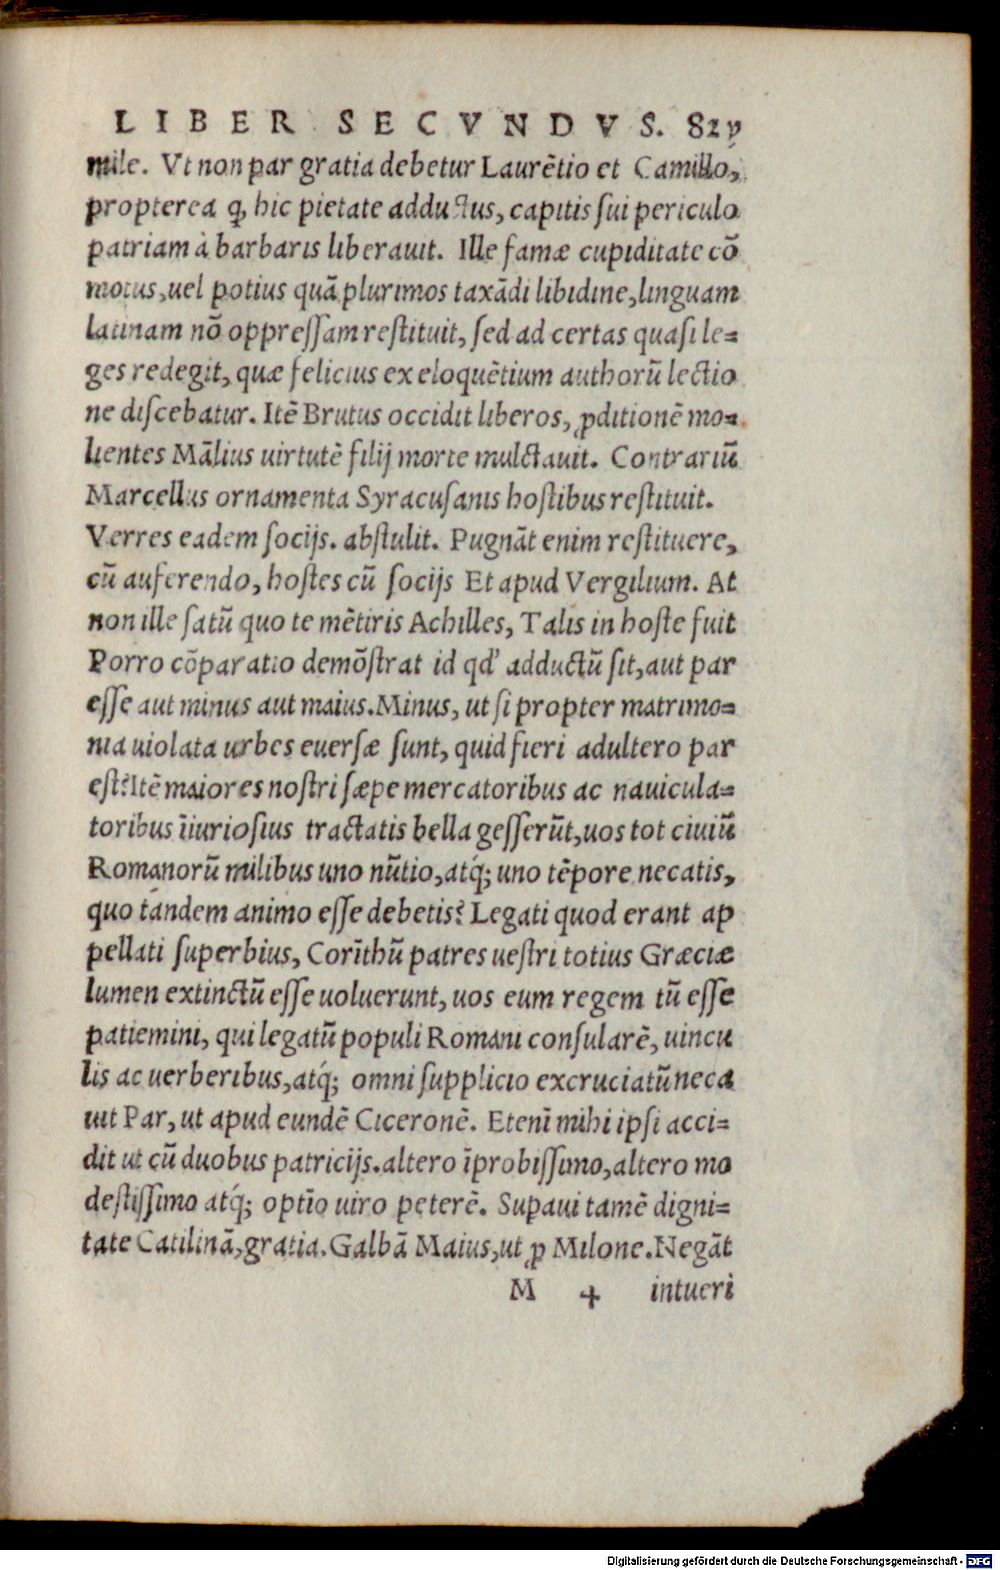 LIBER SECVNDVS.
mile. Vt non par gratia debetur Laurẽtio et Camillo,
propterea ꝙ, hic pietate adductus, capitis sui periculo
patriam à barbaris liberauit. Ille famæ cupiditate cõ
motus, uel potius quã plurimos taxãdi libidine, linguam
latinam nõ oppressam restituit, sed ad certas quasi le=
ges redegit, quæ felicius ex eloquẽtium authorũ lectio
ne discebatur. Itẽ Brutus occidit liberos, ꝓditionẽ mo=
lientes Mãlius uirtutẽ filij morte mulctauit. Contrariũ
Marcellus ornamenta Syracusanis hostibus restituit.
Verres eadem socijs. abstulit. Pugnãt enim restituere,
cũ auferendo, hostes cũ socijs Et apud Vergilium. At
non ille satũ quo te mẽtiris Achilles, Talis in hoste fuit
Porro cõparatio demõstrat id qd' adductũ sit, aut par
esse aut minus aut maius. Minus, ut si propter matrimo=
nia uiolata urbes euersæ sunt, quid fieri adultero par
est? Itẽ maiores nostri sæpe mercatoribus ac nauicula=
toribus ĩiuriosius tractatis bella gesserũt, uos tot ciuiũ
Romanorũ milibus uno nũtio, atq́; uno tẽpore necatis,
quo tandem animo esse debetis? Legati quod erant ap
pellati superbius, Corĩthũ patres uestri totius Græciæ
lumen extinctũ esse uoluerunt, uos eum regem tũ esse
patiemini, qui legatũ populi Romani consularẽ, uincu
lis ac uerberibus, atq́; omni supplicio excruciatũ neca
uit Par, ut apud eundẽ Ciceronẽ. Etenĩ mihi ipsi acci=
dit ut cũ duobus patricijs. altero ĩprobissimo, altero mo
destissimo atq́; optĩo uiro peterẽ. Supaui tamẽ digni=
tate Catilinã, gratia. Galbã Maius, ut ꝓ Milone. Negãt
M 4 intueri
Digitalisierung gefördert durch die Deutsche Forschungsgemeinschaft - DFG